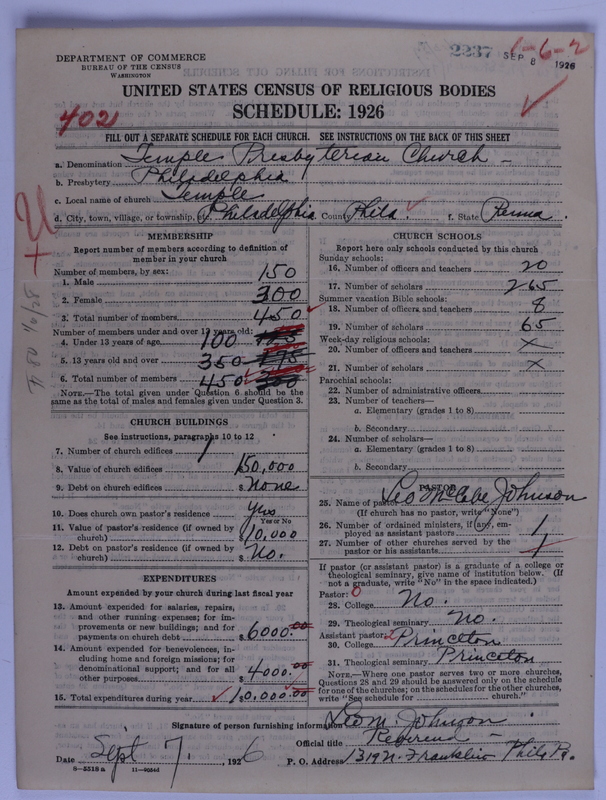 DEPARTMENT OF COMMERCE
BUREAU OF THE CENSUS
WASHINGTON
2237
1-6-2
SEP 8 1926
UNITED STATES CENSUS OF RELIGIOUS BODIES
SCHEDULE: 1926
402
FILL OUT A SEPARATE SCHEDULE FOR EACH CHURCH. SEE INSTRUCTIONS ON THE BACK OF THIS SHEET
a. Denomination Temple Presbyterian Church
b. Presbytery Philadelphia
c. Local name of church Temple
d. City, town, village, or township, etc. Philadelphia County Phila. f. State Penna.
MEMBERSHIP
Report number of members according to definition of
member in your church
Number of members, by sex:
1. Male 150
2. Female 300
3. Total number of members 450
Number of members under and over 13 years old:
4. Under 13 years of age 100
5. 13 years old and over 350
6. Total number of members 450
NOTE.—The total given under Question 6 should be the
same as the total of males and females given under Question 3.
CHURCH BUILDINGS
See instructions, paragraphs 10 to 12
7. Number of church edifices 1
8. Value of church edifices $150,000
9. Debt on church edifices $ None
10. Does church own pastor's residence? Yes
Yes or No
11. Value of pastor's residence (if owned by
church) $10,000
12. Debt on pastor's residence (if owned by
church) $ No.
EXPENDITURES
Amount expended by your church during last fiscal year
13. Amount expended for salaries, repairs,
and other running expenses; for im-
provements or new buildings; and for
payments on church debt $6000.00
14. Amount expended for benevolences, in-
cluding home and foreign missions; for
denominational support; and for all
other purposes $4000.00
15. Total expenditures during year $10,000.00
CHURCH SCHOOLS
Report here only schools conducted by this church
Sunday schools:
16. Number of officers and teachers 20
17. Number of scholars 265
Summer vacation Bible schools:
18. Number of officers and teachers 8
19. Number of scholars 65
Week-day religious schools:
20. Number of officers and teachers X
21. Number of scholars X
Parochial schools:
22. Number of administrative officers
23. Number of teachers—
a. Elementary (grades 1 to 8)
b. Secondary
24. Number of scholars—
a. Elementary (grades 1 to 8)
b. Secondary
PASTOR
25. Name of pastor Leo McCabe Johnson
(If church has no pastor, write "None")
26. Number of ordained ministers, if any, em-
ployed as assistant pastors 1
27. Number of other churches served by the
pastor or his assistants 1
If pastor (or assistant pastor) is a graduate of a college or
theological seminary, give name of institution below. (If
not a graduate, write "No" in the space indicated.)
Pastor: 0
28. College No.
29. Theological seminary No.
Assistant pastor: 2
30. College Princeton
31. Theological seminary Princeton
NOTE.—Where one pastor serves two or more churches,
Questions 28 and 29 should be answered only on the schedule
for one of the churches; on the schedules for the other churches,
write "See schedule for church."
Signature of person furnishing information Leo M. Johnson
Official title Reverend
Date Sept 7, 1926 P. O. Address 1319 N. Franklin Phila Pa.
8—5518 a 11—9056d